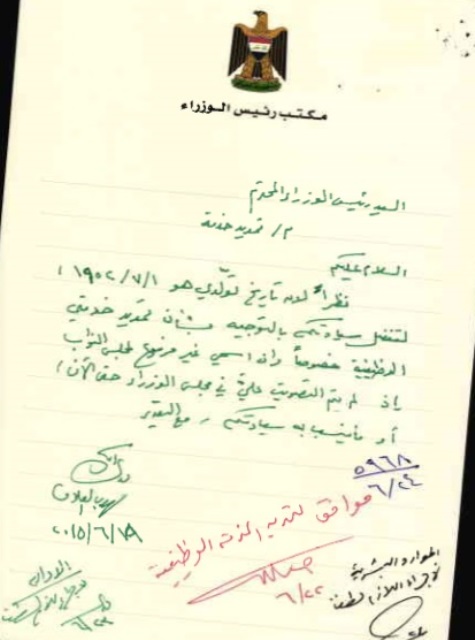 مكتب رئيس الوزراء
السيد رئيس الوزراء المحترم
م/ تمديد خدمة
السلام عليكم
نظراً لان تاريخ تولدي هو ١٩٥٢/٧/١،
لتفضل سيادتكم بالتوجيه بشأن تمديد خدمتي
الوظيفية خصوصاً وان اسمي غير مرفوع لمجلس النواب
إذ لم يتم التصويت عليّ في مجلس الوزراء حتى الآن،
أو ماينسب به سيادتكم، مع التقدير
٢٠١٥/٦/
٥٩٦٨
٦/٢٤
موافق لتمديد الخدمة الوظيفية
٦/٢٢
الموارد البشرية
لاجراء اللازم لطفاً